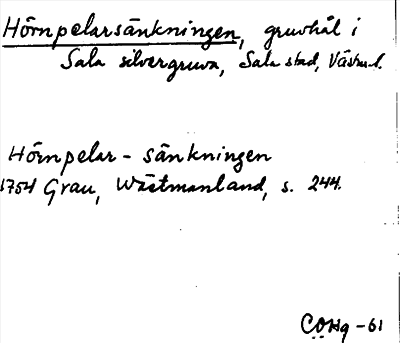 Hörnpelarsänkningen, gruvhål i
Sala silvergruva, Sala stad, Västm.l.
Hörnpelar-sänkningen
1754 Grau, Wästmanland, s. 244.
COHg -61